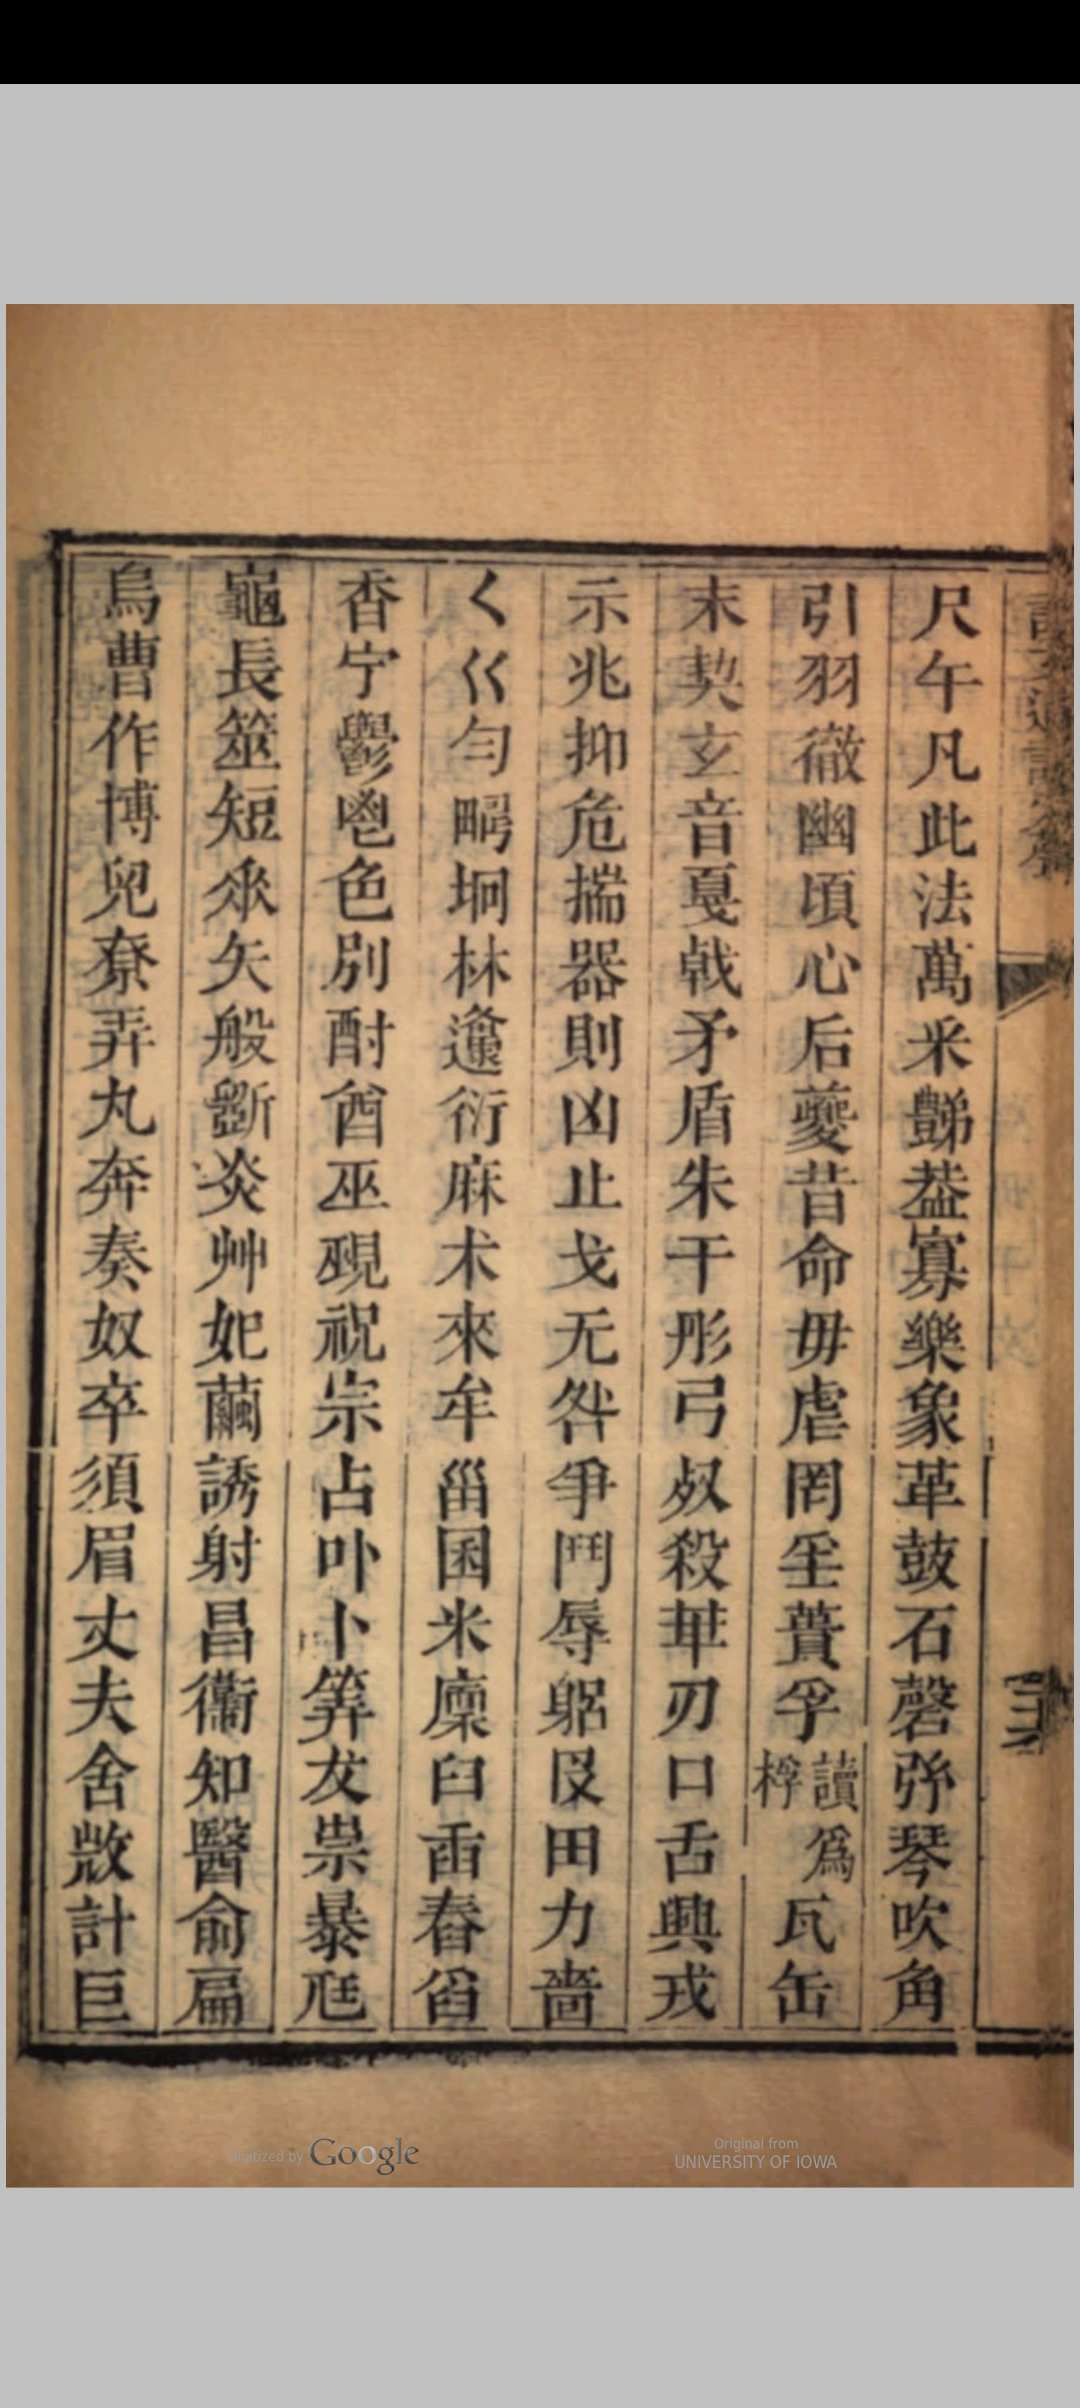 尺午凡此法萬釆豑葢寡樂象革鼓石磬弼琴吹角
引羽徵幽頃心后夔昔命毋虐罔坙蕢孚讀爲桴瓦缶
末契玄音戛戟矛盾朱干彤弓殺華刃口舌興戎
示兆抑危揣器則凶止戈无咎爭鬥辱躬𠬝田力嗇
く巜勻疈坰林邍衍麻朮來牟甾囷米廩臼臿舂臽
香宁鬱鬯色別酎酋巫覡祝宗占卟卜筭犮祟暴尫
龜長筮短𠂢矢般斲炎艸妃繭誘射昌衞知醫俞扁
烏曹作博兒尞弄丸奔奏奴卒須眉丈夫舍敚計巨
說文通訓定聲
Digitized by Google
Original from
UNIVERSITY OF IOWA